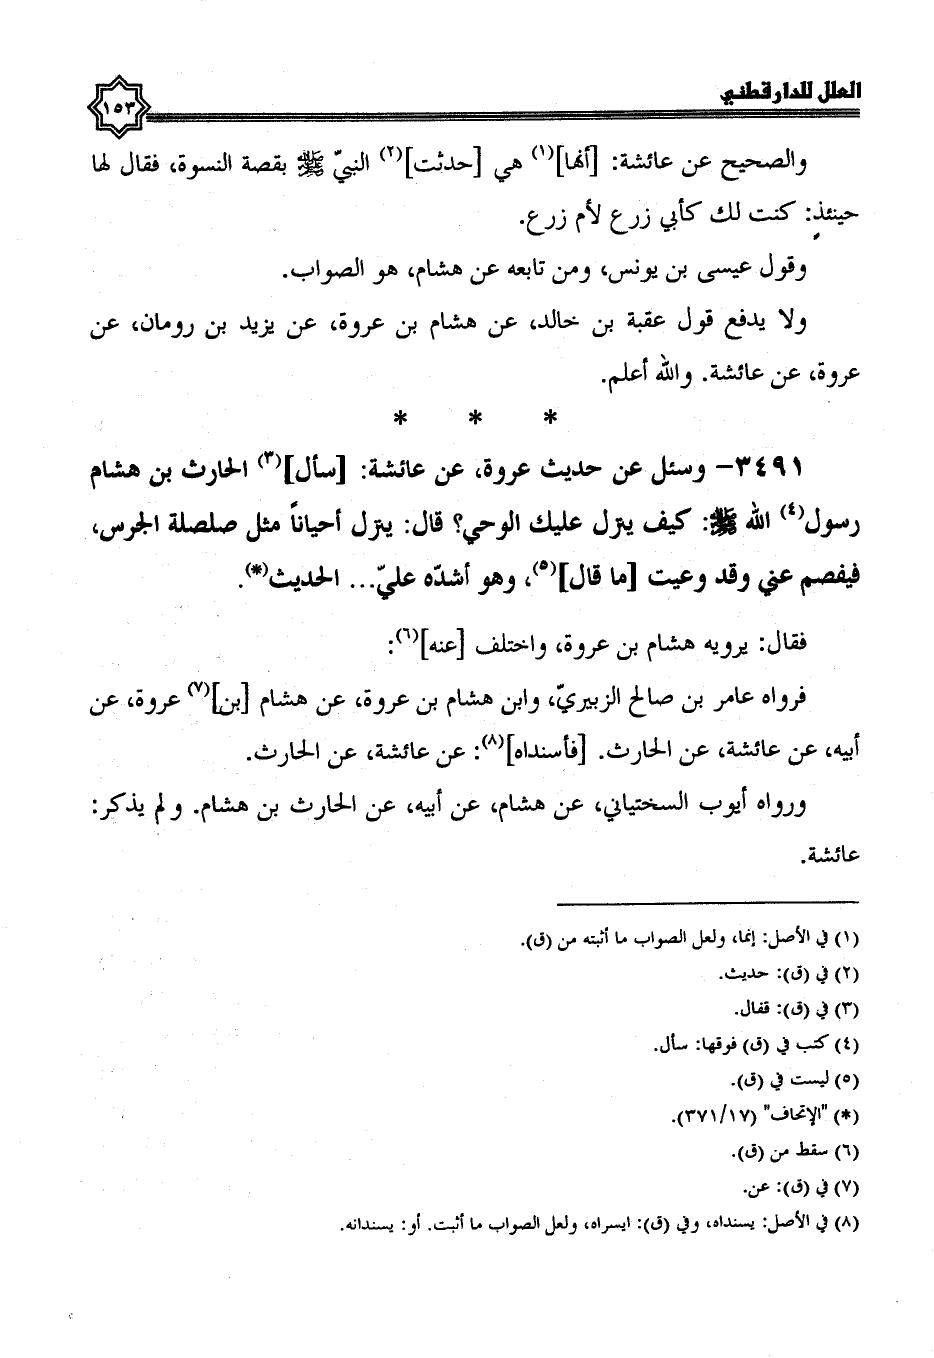 العلل للدارقطني
١٥٣
والصحيح عن عائشة: [أنها](١) هي [حدثت](٢) النبيّ ﷺ بقصة النسوة، فقال لها
حينئذٍ: كنت لك كأبي زرع لأم زرع.
وقول عيسى بن يونس، ومن تابعه عن هشام، هو الصواب.
ولا يدفع قول عقبة بن خالد، عن هشام بن عروة، عن يزيد بن رومان، عن
عروة، عن عائشة. والله أعلم.
* * *
٣٤٩١- وسئل عن حديث عروة، عن عائشة: [سأل](٣) الحارث بن هشام
رسول(٤) الله ﷺ: كيف ينزل عليك الوحي؟ قال: ينزل أحياناً مثل صلصلة الجرس،
فيفصم عني وقد وعيت [ما قال](٥)، وهو أشدّه عليّ... الحديث(*).
فقال: يرويه هشام بن عروة، واختلف [عنه](٦):
فرواه عامر بن صالح الزبيريّ، وابن هشام بن عروة، عن هشام [بن](٧) عروة، عن
أبيه، عن عائشة، عن الحارث. [فأسنداه](٨): عن عائشة، عن الحارث.
ورواه أيوب السختياني، عن هشام، عن أبيه، عن الحارث بن هشام. ولم يذكر:
عائشة.
(١) في الأصل: إنما، ولعل الصواب ما أثبته من (ق).
(٢) في (ق): حديث.
(٣) في (ق): قفال.
(٤) كتب في (ق) فوقها: سأل.
(٥) ليست في (ق).
(*) "الإتحاف" (٣٧١/١٧).
(٦) سقط من (ق).
(٧) في (ق): عن.
(٨) في الأصل: يسنداه، وفي (ق): ايسراه، ولعل الصواب ما أثبت. أو: يسندانه.